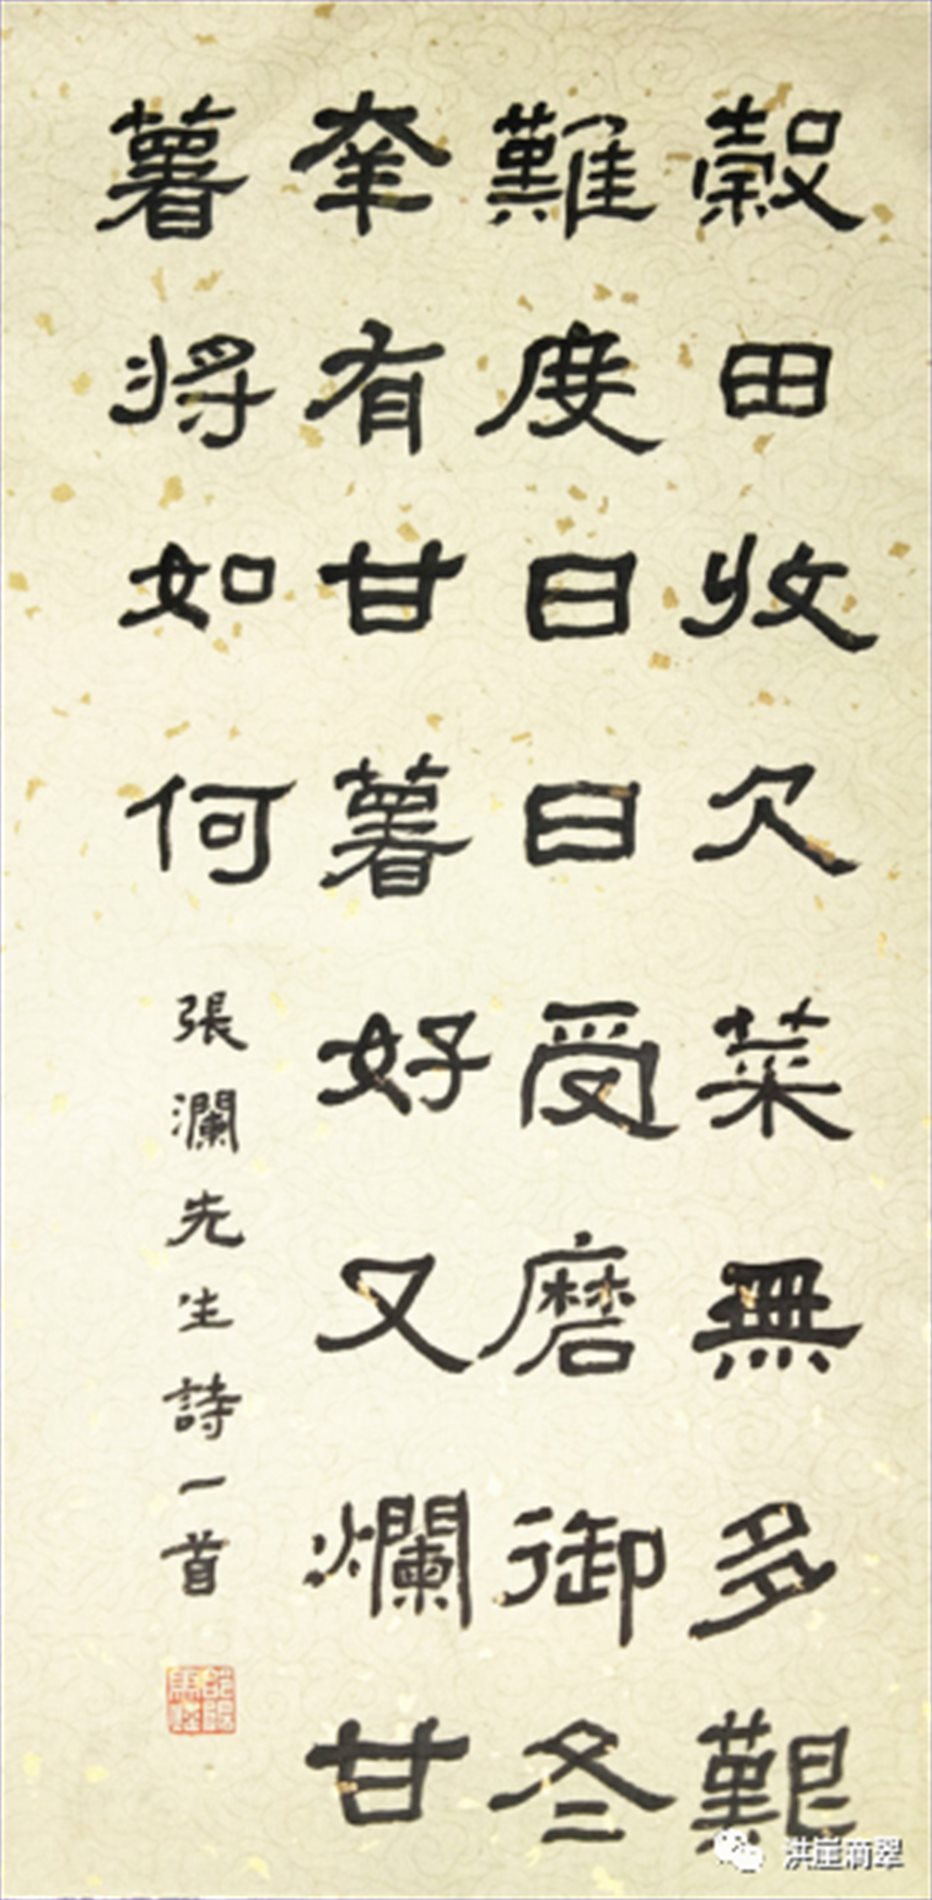 穀田收欠菜無多艱
難度日日受磨御冬
幸有甘薯好又爛甘
薯將如何
張瀾先生詩一首
洪崖滴翠